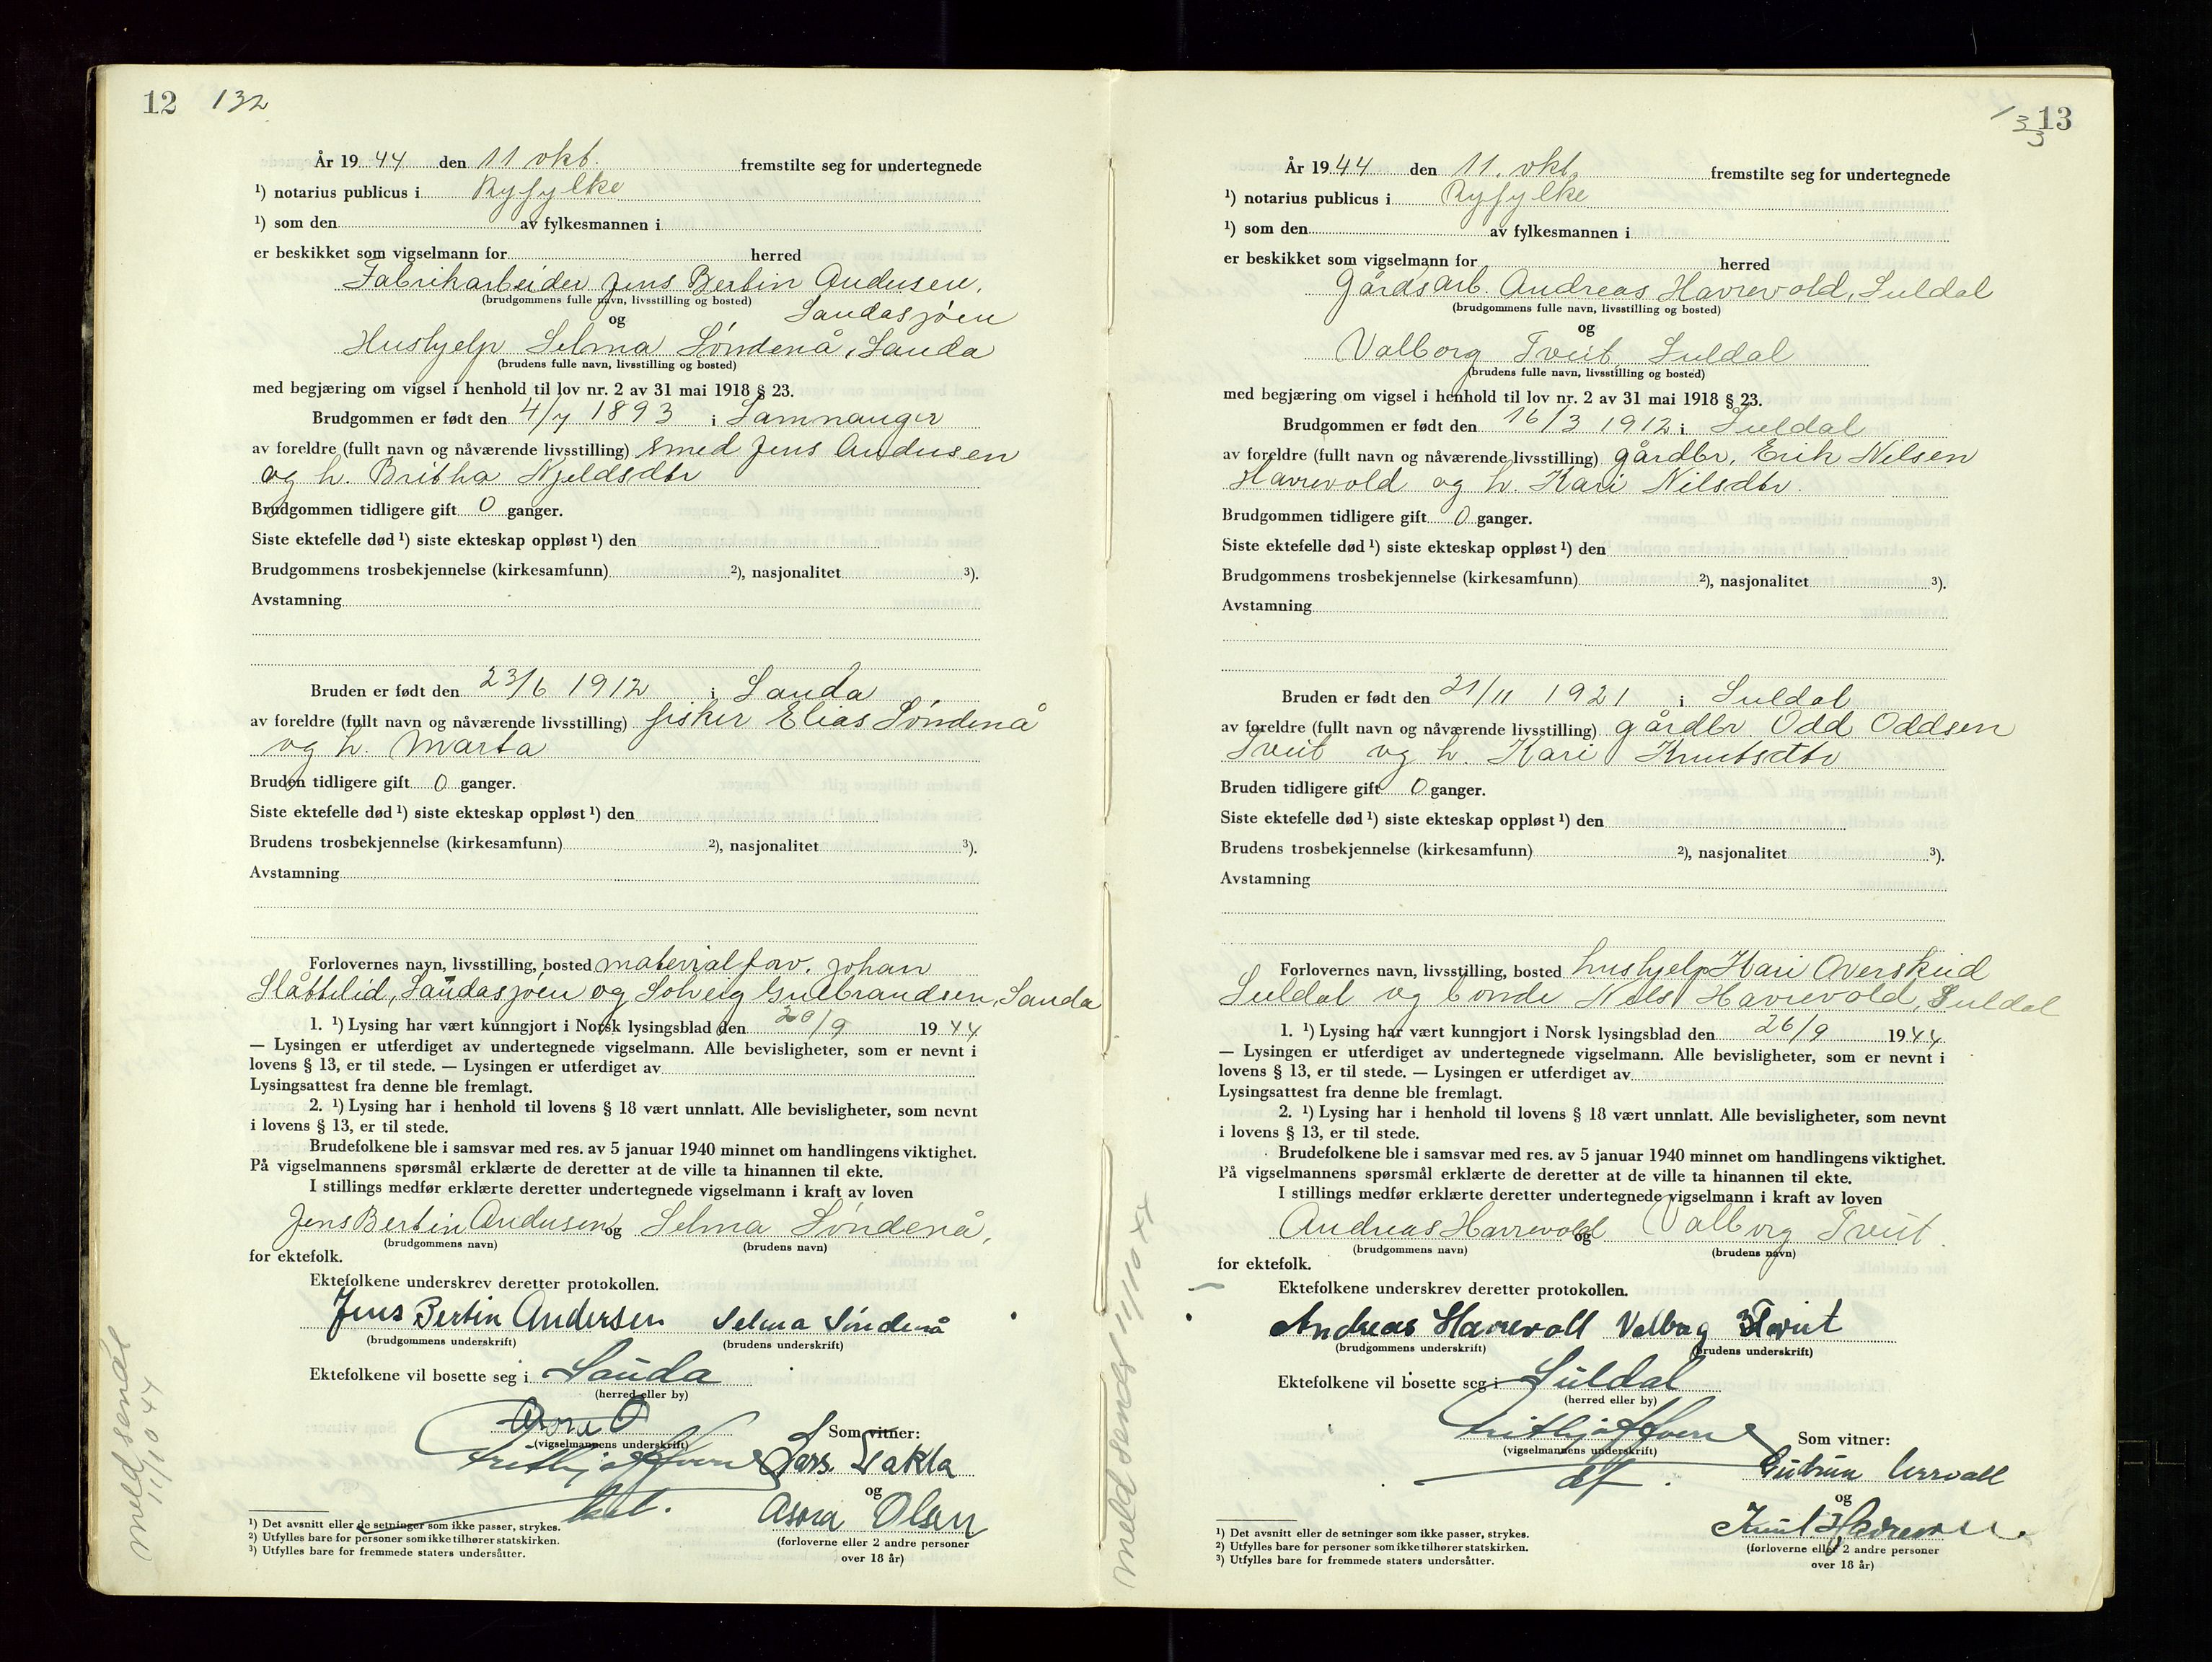 12 132
År 19 44 den 11 okt. fremstilte seg for undertegnede
¹) notarius publicus i Ryfylke
¹) som den av fylkesmannen i
er beskikket som vigselmann for herred
Fabrikarbeider Jens Bertin Andersen,
(brudgommens fulle navn, livsstilling og bosted)
og Saudasjøen
Hushjelp Selma Søndenå, Sauda
(brudens fulle navn, livsstilling og bosted)
med begjæring om vigsel i henhold til lov nr. 2 av 31 mai 1918 § 23.
Brudgommen er født den 4/7 1893 i Samnanger
av foreldre (fullt navn og nåværende livsstilling) smed Jens Andersen
og h. Britha Kjeldsdtr
Brudgommen tidligere gift 0 ganger.
Siste ektefelle død ¹) siste ekteskap oppløst ¹) den
Brudgommens trosbekjennelse (kirkesamfunn) ²), nasjonalitet ³).
Avstamning
Bruden er født den 23/6 1912 i Sauda
av foreldre (fullt navn og nåværende livsstilling) fisker Elias Søndenå
og h. Marta
Bruden tidligere gift 0 ganger.
Siste ektefelle død ¹) siste ekteskap oppløst ¹) den
Brudens trosbekjennelse (kirkesamfunn) ²), nasjonalitet ³).
Avstamning
Forlovernes navn, livsstilling, bosted materialforv. Johan
Slåttelid, Saudasjøen og Solveig Gulbrandsen, Sauda
1. ¹) Lysing har vært kunngjort i Norsk lysingsblad den /9 19 44
— Lysingen er utferdiget av undertegnede vigselmann. Alle bevisligheter, som er nevnt i
lovens § 13, er til stede. — Lysingen er utferdiget av
Lysingsattest fra denne ble fremlagt.
2. ¹) Lysing har i henhold til lovens § 18 vært unnlatt. Alle bevisligheter, som nevnt
i lovens § 13, er til stede.
Brudefolkene ble i samsvar med res. av 5 januar 1940 minnet om handlingens viktighet.
På vigselmannens spørsmål erklærte de deretter at de ville ta hinannen til ekte.
I stillings medfør erklærte deretter undertegnede vigselmann i kraft av loven
Jens Bertin Andersen og Selma Søndenå,
(brudgommens navn) (brudens navn)
for ektefolk.
Ektefolkene underskrev deretter protokollen.
Jens Bertin Andersen Selma Søndenå
(brudgommens underskrift) (brudens underskrift)
Ektefolkene vil bosette seg i Sauda
(herred eller by)
Asora O Som vitner:
(vigselmannens underskrift)
Lars
og
Asora Olsen
(forloverne eller 2 andre personer
over 18 år)
¹) Det avsnitt eller de setninger som ikke passer, strykes.
²) Utfylles bare for personer som ikke tilhører statskirken.
³) Utfylles bare for fremmede staters undersåtter.
11/10 44
133 13
År 19 44 den 11. okt. fremstilte seg for undertegnede
¹) notarius publicus i Ryfylke
¹) som den av fylkesmannen i
er beskikket som vigselmann for herred
Gårdsarb. Andreas Havrevold, Suldal
(brudgommens fulle navn, livsstilling og bosted)
og
Valborg Tveit Suldal
(brudens fulle navn, livsstilling og bosted)
med begjæring om vigsel i henhold til lov nr. 2 av 31 mai 1918 § 23.
Brudgommen er født den 16/3 1912 i Suldal
av foreldre (fullt navn og nåværende livsstilling) gårdbr. Erik Nilsen
Havrevold og h. Kari Nilsdtr.
Brudgommen tidligere gift 0 ganger.
Siste ektefelle død ¹) siste ekteskap oppløst ¹) den
Brudgommens trosbekjennelse (kirkesamfunn) ²), nasjonalitet ³).
Avstamning
Bruden er født den 21/11 1921 i Suldal
av foreldre (fullt navn og nåværende livsstilling) gårdbr Odd Oddsen
Tveit og h. Kari Knutsdtr
Bruden tidligere gift 0 ganger.
Siste ektefelle død ¹) siste ekteskap oppløst ¹) den
Brudens trosbekjennelse (kirkesamfunn) ²), nasjonalitet ³).
Avstamning
Forlovernes navn, livsstilling, bosted hushjelp Kari Overskeid
Suldal og bonde Nils Havrevold, Suldal
1. ¹) Lysing har vært kunngjort i Norsk lysingsblad den 26/9 19 44
— Lysingen er utferdiget av undertegnede vigselmann. Alle bevisligheter, som er nevnt i
lovens § 13, er til stede. — Lysingen er utferdiget av
Lysingsattest fra denne ble fremlagt.
2. ¹) Lysing har i henhold til lovens § 18 vært unnlatt. Alle bevisligheter, som nevnt
i lovens § 13, er til stede.
Brudefolkene ble i samsvar med res. av 5 januar 1940 minnet om handlingens viktighet.
På vigselmannens spørsmål erklærte de deretter at de ville ta hinannen til ekte.
I stillings medfør erklærte deretter undertegnede vigselmann i kraft av loven
Andreas Havrevold og Valborg Tveit
(brudgommens navn) (brudens navn)
for ektefolk.
Ektefolkene underskrev deretter protokollen.
Andreas Havrevoll Valborg Tveit
(brudgommens underskrift) (brudens underskrift)
Ektefolkene vil bosette seg i Suldal
(herred eller by)
(vigselmannens underskrift) Som vitner:
Gudrun
og
Knut
(forloverne eller 2 andre personer
over 18 år)
¹) Det avsnitt eller de setninger som ikke passer, strykes.
²) Utfylles bare for personer som ikke tilhører statskirken.
³) Utfylles bare for fremmede staters undersåtter.
meld sendt 11/10 44